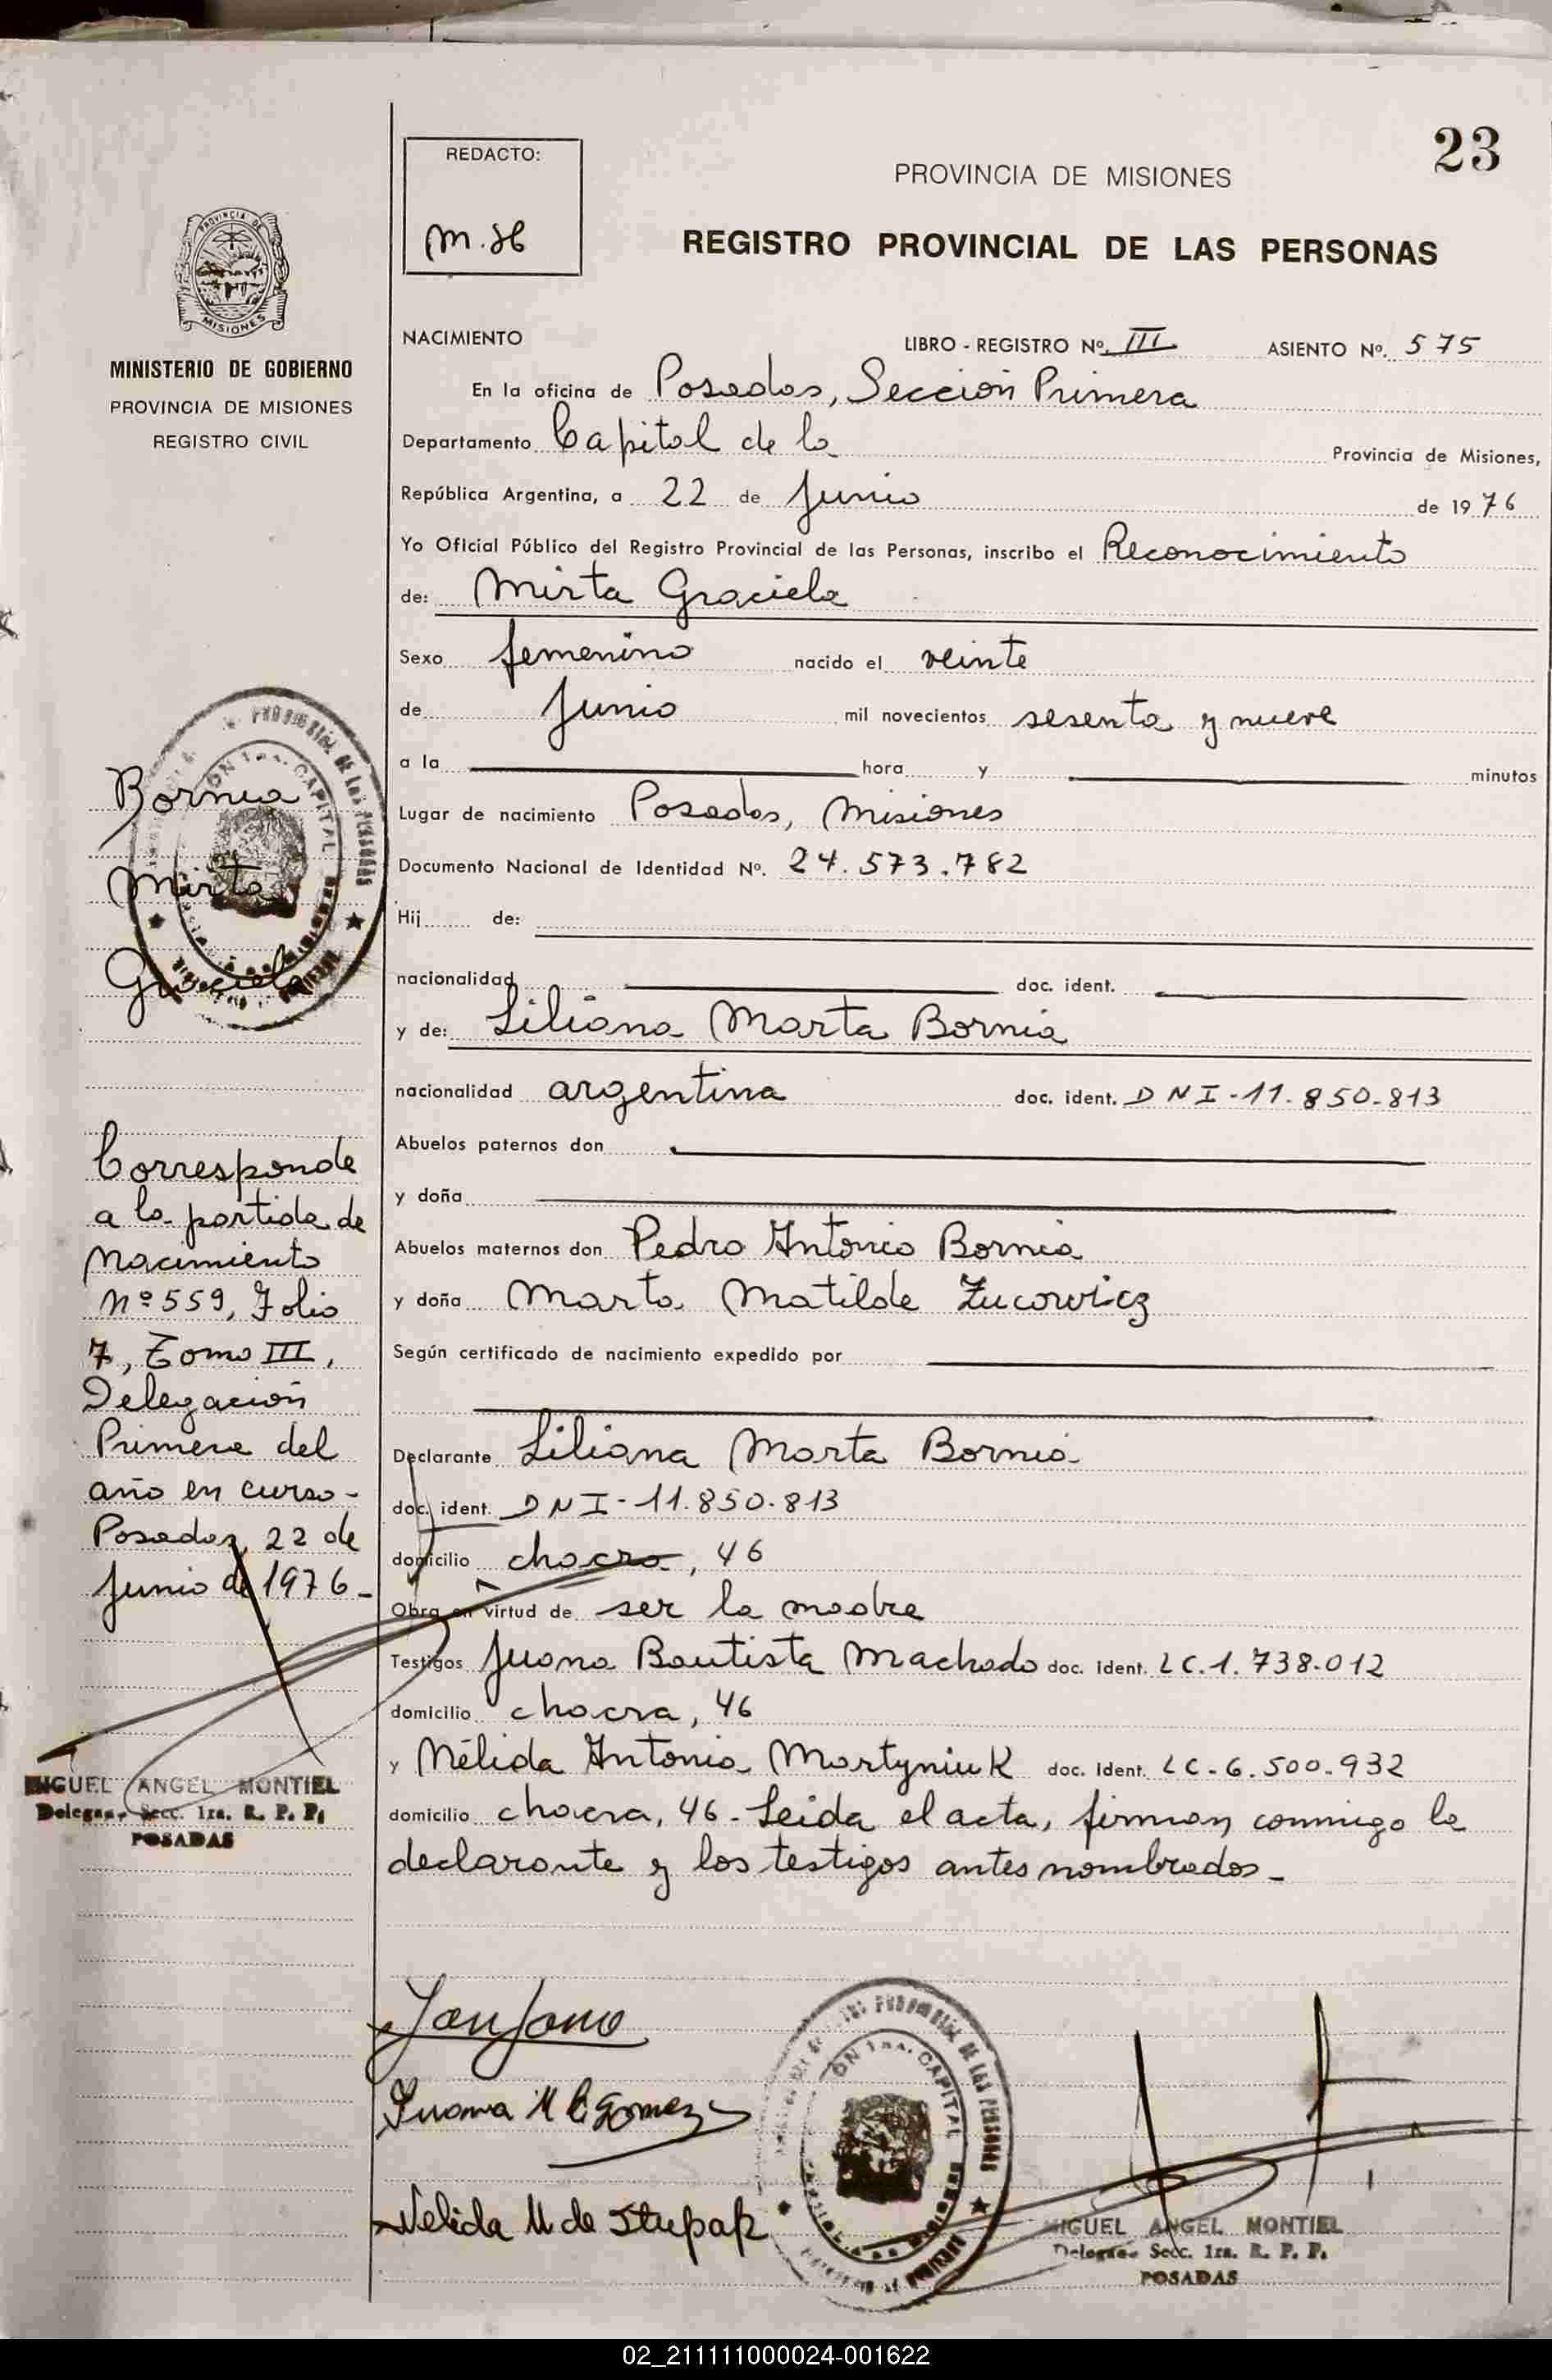 23
REDACTO:
M.H
PROVINCIA DE MISIONES
REGISTRO PROVINCIAL DE LAS PERSONAS
MINISTERIO DE GOBIERNO
PROVINCIA DE MISIONES
REGISTRO CIVIL
NACIMIENTO LIBRO - REGISTRO Nº. III ASIENTO Nº. 575
En la oficina de Posadas, Sección Primera
Departamento Capital de la Provincia de Misiones,
República Argentina, a 22 de Junio de 1976
Yo Oficial Público del Registro Provincial de las Personas, inscribo el Reconocimiento
de: Mirta Graciela
Sexo femenino nacido el veinte
de Junio mil novecientos sesenta y nueve
a la hora y minutos
Lugar de nacimiento Posadas, Misiones
Documento Nacional de Identidad Nº. 24.573.782
Hij de:
nacionalidad doc. ident.
y de: Liliana Marta Bornia
nacionalidad argentina doc. ident. DNI-11.850-813
Abuelos paternos don
y doña
Abuelos maternos don Pedro Antonio Bornia
y doña Marta Matilde Zucowicz
Según certificado de nacimiento expedido por
Declarante Liliana Marta Bornia
doc. ident. DNI-11.850-813
domicilio chacra, 46
Obra en virtud de ser la madre
Testigos Juana Bautista Machado doc. Ident. LC.1.738-012
domicilio chacra, 46
y Nélida Antonia Martyniuk doc. Ident. LC-6.500-932
domicilio chacra, 46- Leida el acta, firman conmigo la
declarante y los testigos antes nombrados-
Bornia
Mirta
Graciela
Corresponde
a la partida de
Nacimiento
Nº 559, Folio
7, Tomo III,
Delegación
Primera del
año en curso-
Posadas, 22 de
Junio de 1976-
MIGUEL ANGEL MONTIEL
Delegado Secc. 1ra. R. P. P.
POSADAS
Juana M de Gomez
Nelida M de Stupak
MIGUEL ANGEL MONTIEL
Delegado Secc. 1ra. R. P. P.
POSADAS
02_211111000024-001622